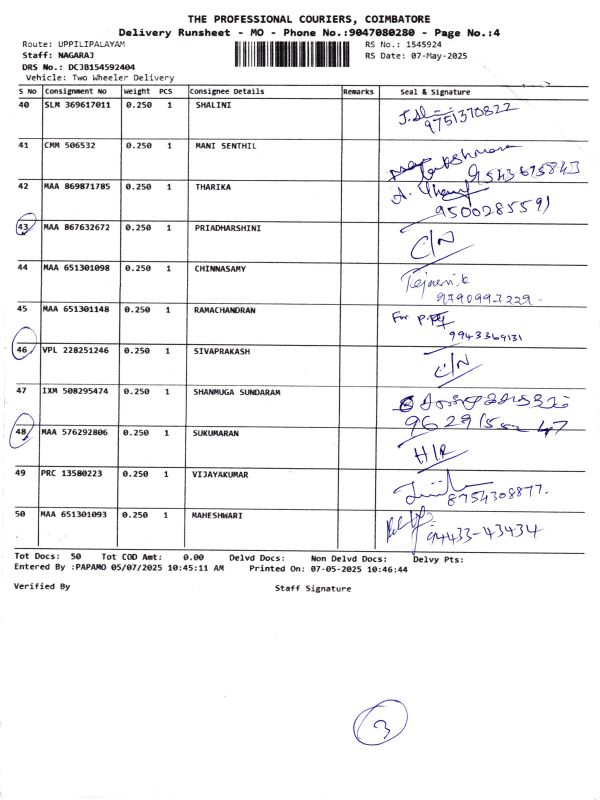 THE PROFESSIONAL COURIERS, COIMBATORE
Delivery Runsheet - MO - Phone No.:9047080280 - Page No.:4
Route: UPPILIPALAYAM RS No.: 1545924
Staff: NAGARAJ RS Date: 07-May-2025
DRS No.: DCJB154592404
Vehicle: Two Wheeler Delivery
S No Consignment No Weight PCS Consignee Details Remarks Seal & Signature
40 SLM 369617011 0.250 1 SHALINI
9751370822
41 CMM 506532 0.250 1 MANI SENTHIL
9543675843
42 MAA 869871785 0.250 1 THARIKA
9500285591
43 MAA 867632672 0.250 1 PRIADHARSHINI C/N
44 MAA 651301098 0.250 1 CHINNASAMY
9790997229.
45 MAA 651301148 0.250 1 RAMACHANDRAN For
9943369131
46 VPL 228251246 0.250 1 SIVAPRAKASH C/N
47 IXM 508295474 0.250 1 SHANMUGA SUNDARAM
48 MAA 576292806 0.250 1 SUKUMARAN H/R
49 PRC 13580223 0.250 1 VIJAYAKUMAR
8754308877.
50 MAA 651301093 0.250 1 MAHESHWARI
94433-43434
Tot Docs: 50 Tot COD Amt: 0.00 Delvd Docs: Non Delvd Docs: Delvy Pts:
Entered By :PAPAMO 05/07/2025 10:45:11 AM Printed On: 07-05-2025 10:46:44
Verified By Staff Signature
3